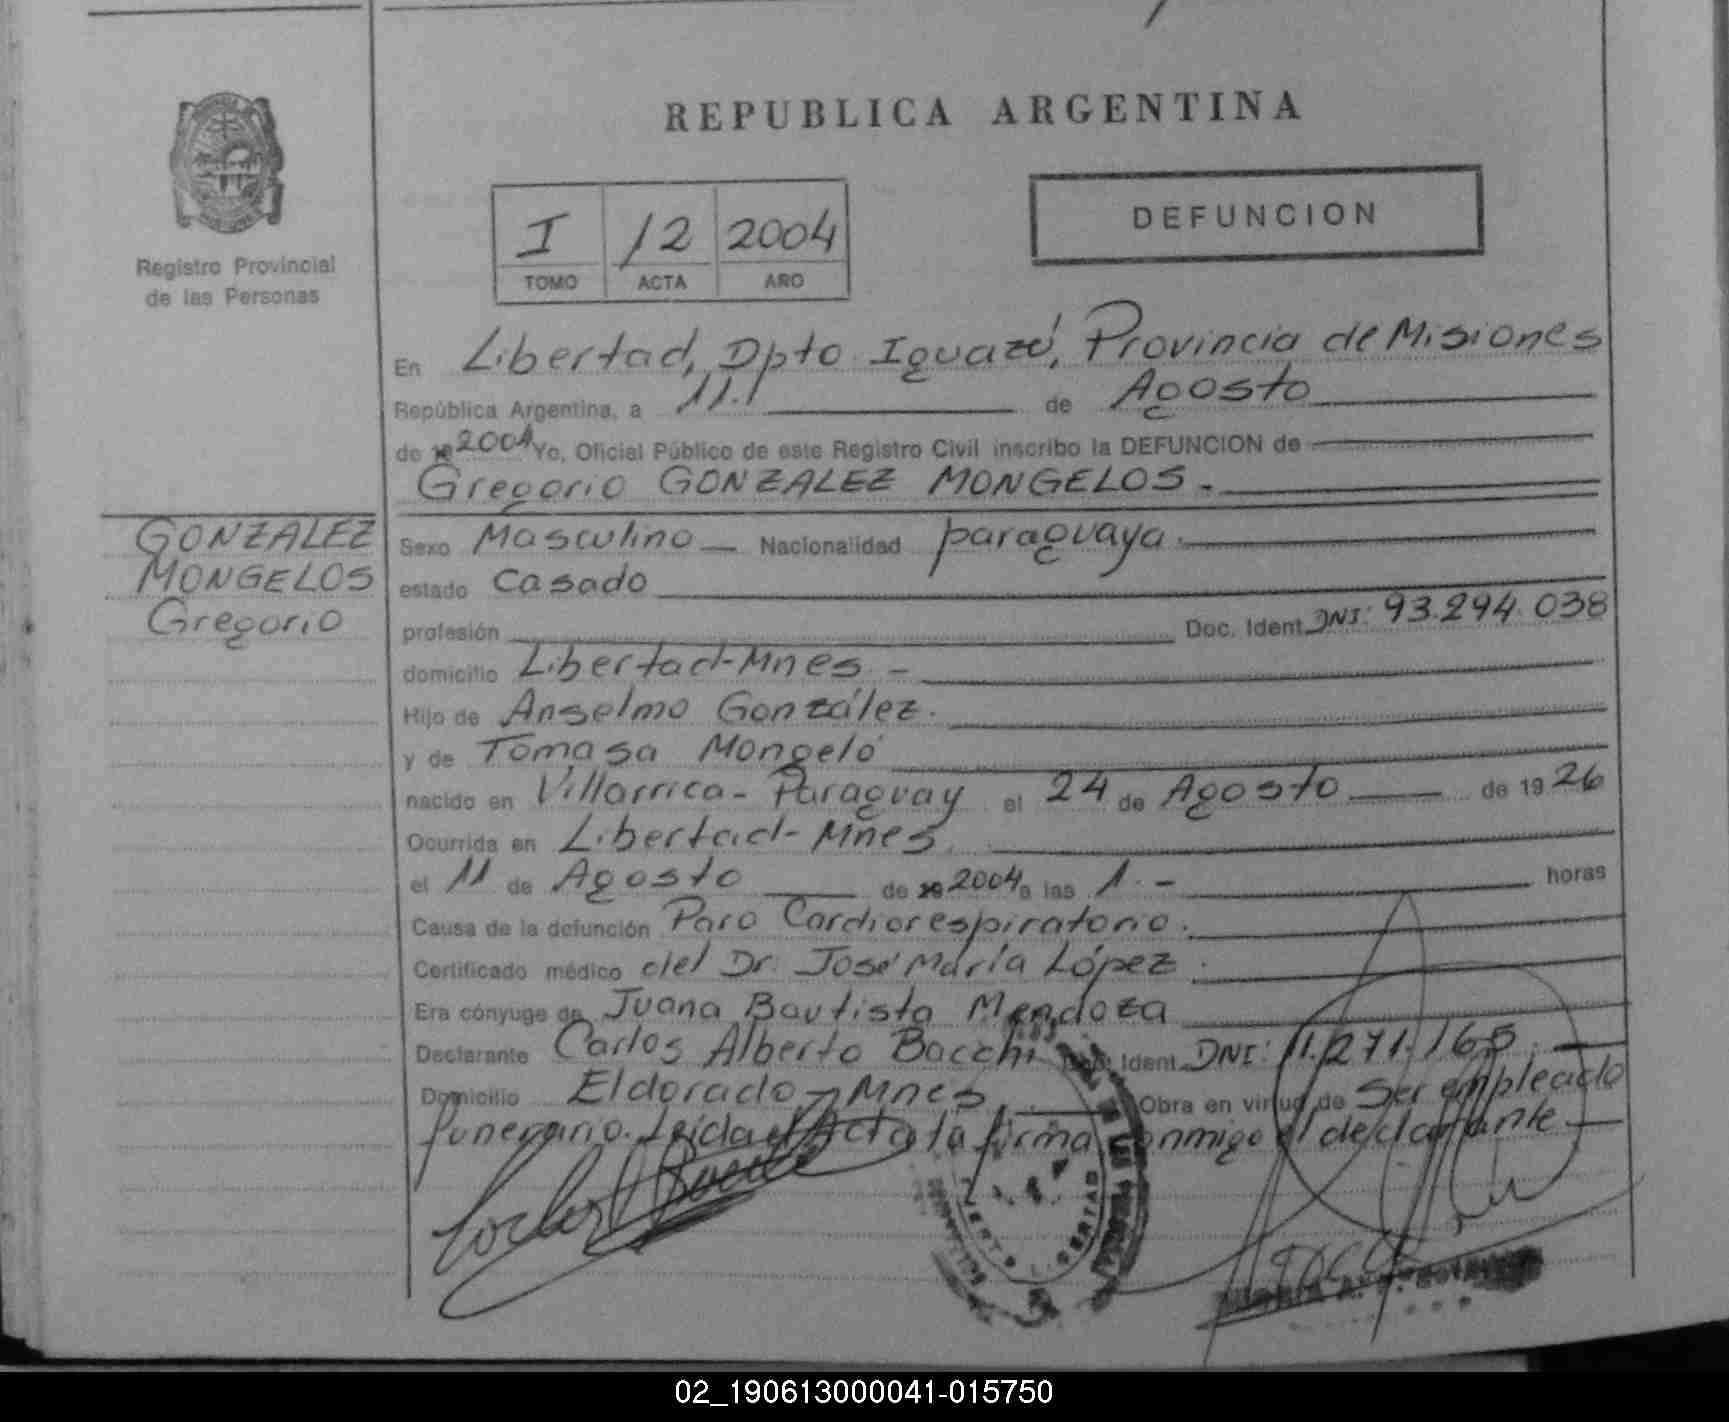 REPUBLICA ARGENTINA
DEFUNCION
I 12 2004
TOMO ACTA AÑO
Registro Provincial
de las Personas
En Libertad, Dpto Iguazú, Provincia de Misiones
República Argentina, a 11.- de Agosto
de 19 2004 Yo, Oficial Público de este Registro Civil inscribo la DEFUNCION de
Gregorio GONZALEZ MONGELOS.-
GONZALEZ
MONGELOS
Gregorio
Sexo Masculino - Nacionalidad paraguaya.
estado Casado
profesión Doc. Ident. DNI: 93.294.038
domicilio Libertad-Mnes -
Hijo de Anselmo González.
y de Tomasa Mongeló
nacido en Villarrica - Paraguay el 24 de Agosto de 1926
Ocurrida en Libertad - Mnes.
el 11 de Agosto de 19 2004 a las 1.- horas
Causa de la defunción Paro Cardiorespiratorio.
Certificado médico del Dr. José María López.
Era cónyuge de Juana Bautista Mendoza
Declarante Carlos Alberto Bacchi Doc. Ident. DNI: 11.271.165.-
Domicilio Eldorado - Mnes. Obra en virtud de Ser empleado
funerario. Leída el Acta la firma conmigo el declarante
PUERTO LIBERTAD
02_190613000041-015750